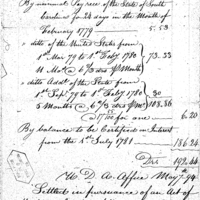 By nominal Pay recd of the State of South
Carolina for 24 days in the Month of
February 1779 5.53
ditto of the United States from
1st Mar 79 to 1st Feby 1780 73.33
11 Mos @ 6 2/3 drs Month
ditto Assist of the State from
1st Sept 79 to 1st Feby 1780 30
5 Months @ 6 drs 108.86
for one 6.20
By balance to be Certified on Interest
from the 1st July 1781 186.24
Drs 192.44
W. D. Ac. Office May 7. 94
Settled in pursuance of an Act of